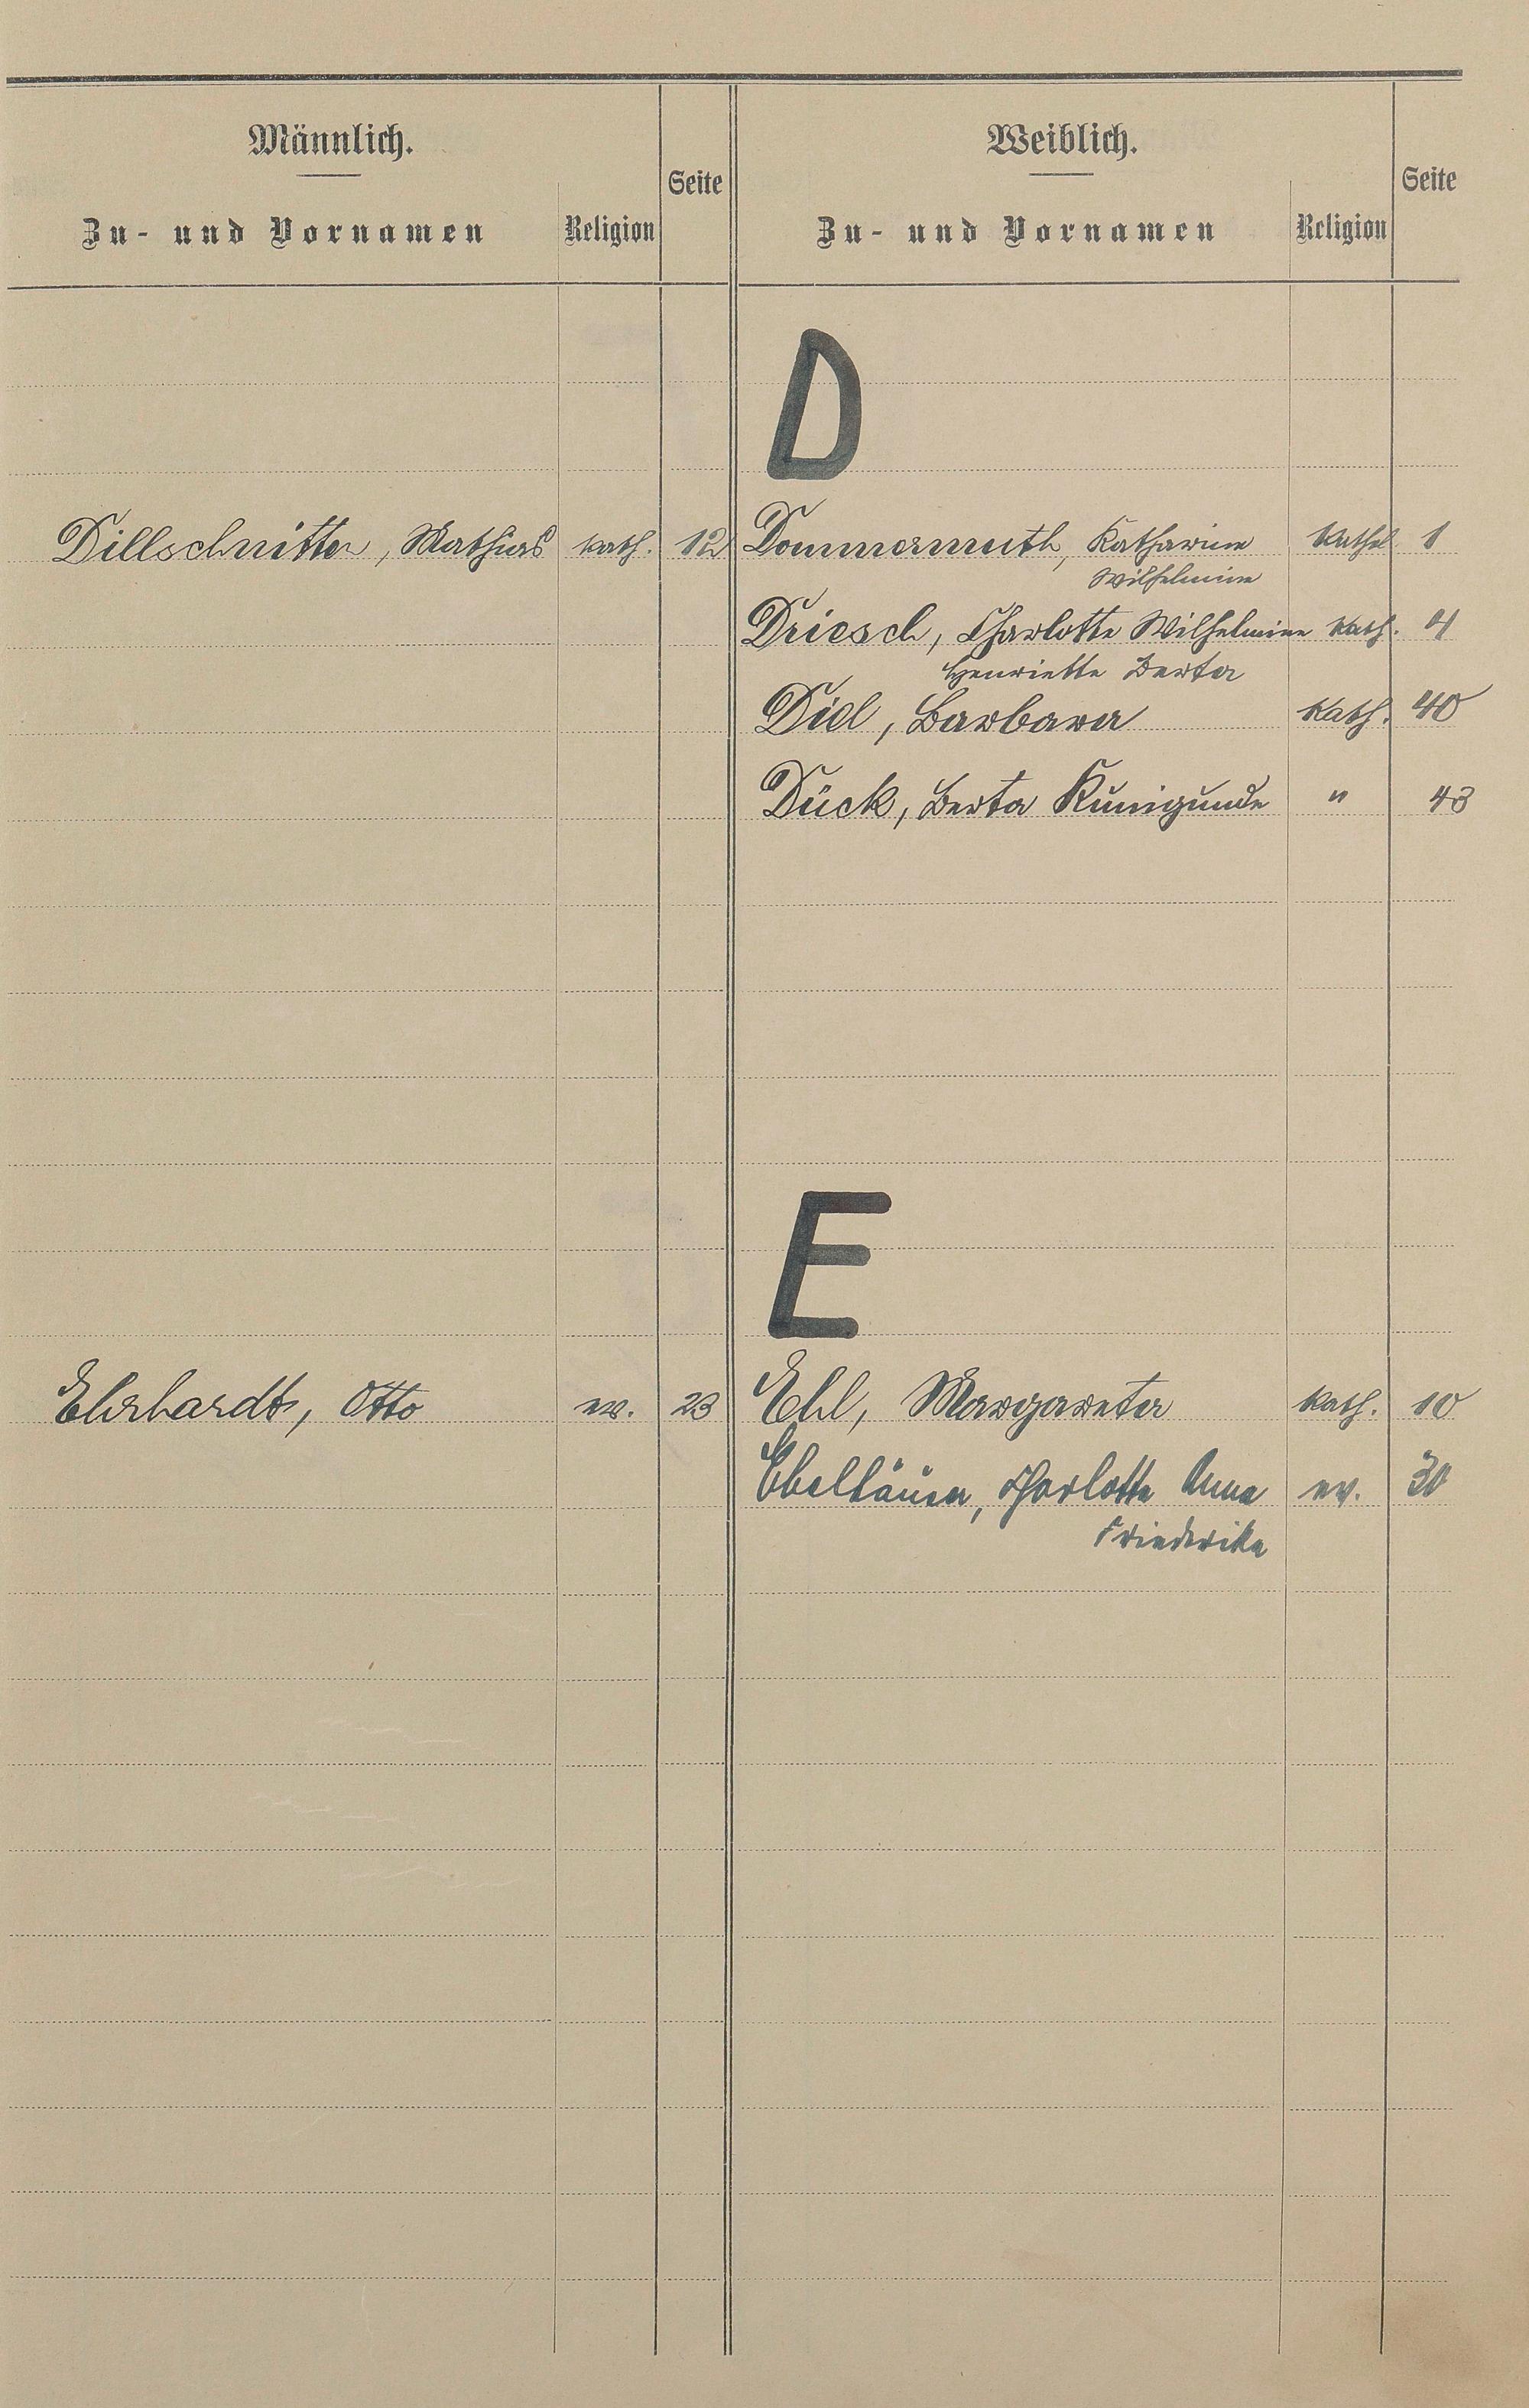 Männlich.
Zu- und Vornamen Religion Seite
Weiblich.
Zu- und Vornamen Religion Seite
D
Dillschnitter, Mathias kath. 12
Dommermuth, Katharina kathol. 1
Wilhelmine
Driesch, Charlotte Wilhelmine kath. 4
Henriette Berta
Diel, Barbara kath. 40
Dück, Berta Kunigunde " 43
E
Ehrhardt, Otto ev. 23
Ehl, Margareta kath. 10
Ebelhäuser, Charlotte Anna ev. 30
Friederika